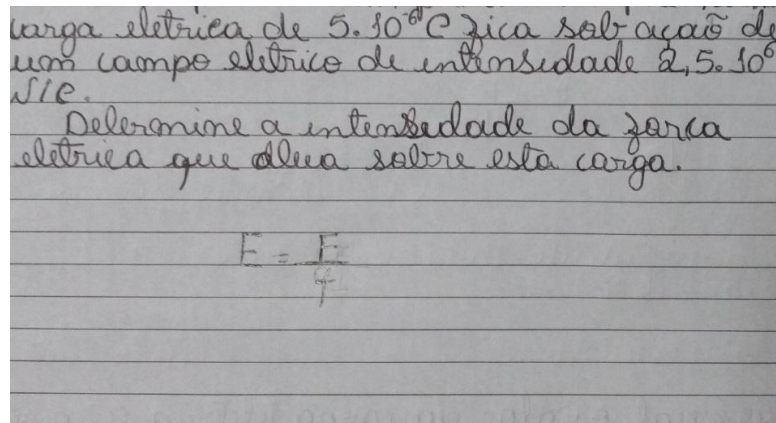 carga eletrica de 5.10⁻⁶ C fica sob açaõ de
um campo eletrico de intensidade 2,5.10⁶
N/C.
Determine a intensidade da força
eletrica que atua sobre esta carga.
E = F/q